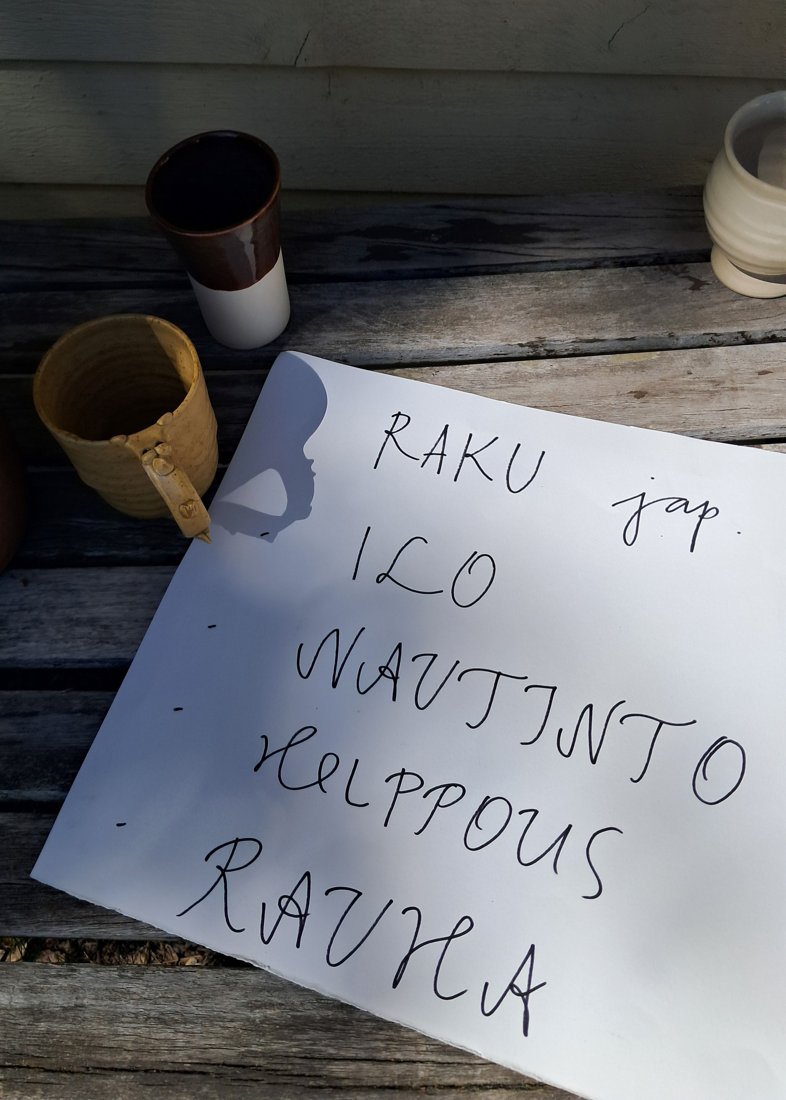 RAKU jap.
- ILO
- NAUTINTO
- HELPPOUS
- RAUHA